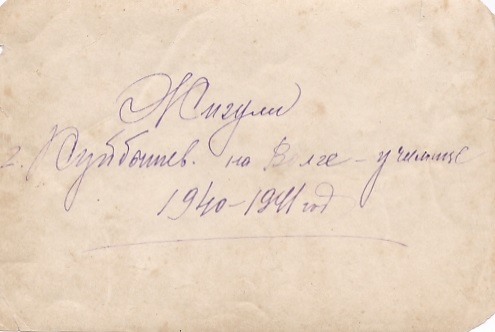 Жигули
г. Куйбышев. на Волге - училище
1940-1941 год